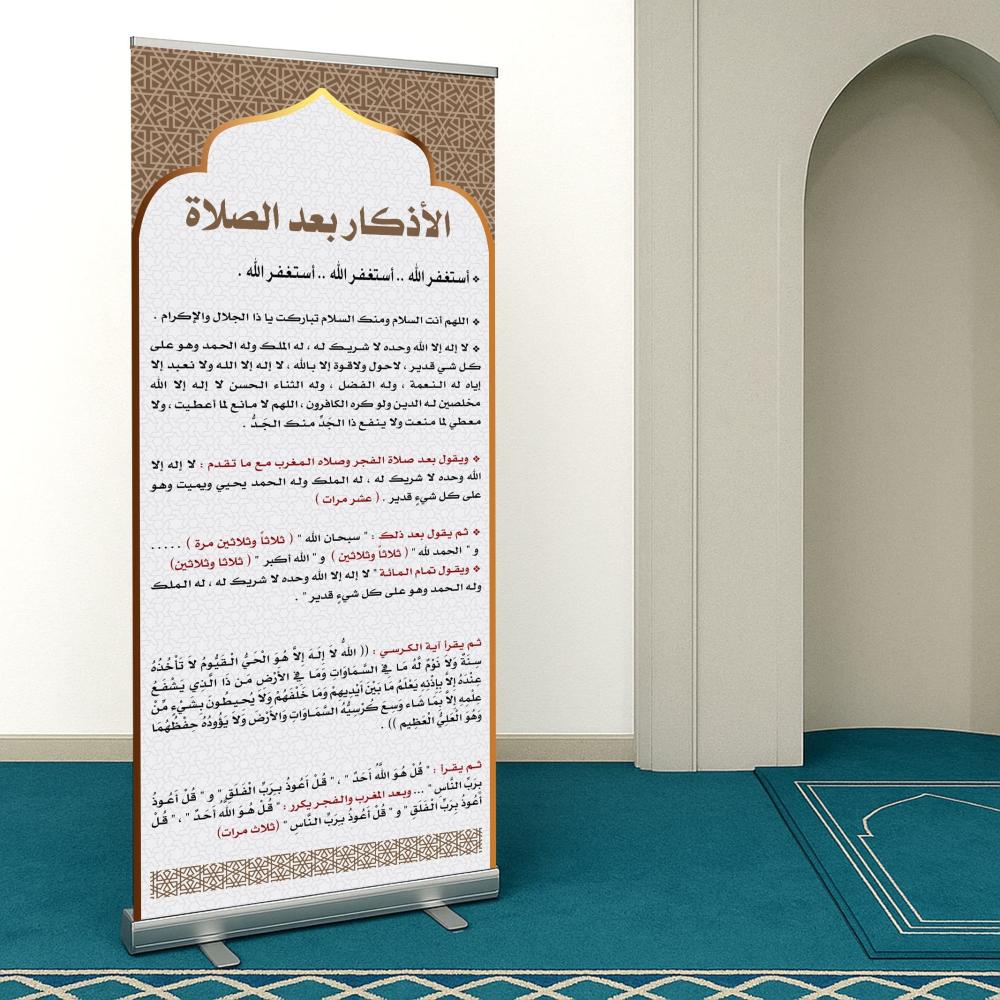 الأذكار بعد الصلاة
❖ أستغفر الله .. أستغفر الله .. أستغفر الله .
❖ اللهم أنت السلام ومنك السلام تباركت يا ذا الجلال والإكرام .
❖ لا إله إلا الله وحده لا شريك له ، له الملك وله الحمد وهو على
كل شي قدير ، لاحول ولاقوة إلا بالله ، لا إله إلا الله ولا نعبد إلا
إياه له النعمة ، وله الفضل ، وله الثناء الحسن لا إله إلا الله
مخلصين له الدين ولو كره الكافرون ، اللهم لا مانع لما أعطيت ، ولا
معطي لما منعت ولا ينفع ذا الجَدِّ منك الجَدُّ .
❖ ويقول بعد صلاة الفجر وصلاه المغرب مع ما تقدم : لا إله إلا
الله وحده لا شريك له ، له الملك وله الحمد يحيي ويميت وهو
على كل شيءٍ قدير . ( عشر مرات )
❖ ثم يقول بعد ذلك : " سبحان الله " ( ثلاثاً وثلاثين مرة ) .....
و " الحمد لله " ( ثلاثاً وثلاثين ) و " الله أكبر " ( ثلاثا وثلاثين)
❖ ويقول تمام المائة " لا إله إلا الله وحده لا شريك له ، له الملك
وله الحمد وهو على كل شيءٍ قدير " .
ثم يقرأ آية الكرسي : (( اللهُ لاَ إِلَهَ إِلاَّ هُوَ الْحَيُّ الْقَيُّومُ لاَ تَأْخُذُهُ
سِنَةٌ وَلاَ نَوْمٌ لَّهُ مَا فِي السَّمَاوَاتِ وَمَا فِي الأَرْضِ مَن ذَا الَّذِي يَشْفَعُ
عِنْدَهُ إِلاَّ بِإِذْنِهِ يَعْلَمُ مَا بَيْنَ أَيْدِيهِمْ وَمَا خَلْفَهُمْ وَلاَ يُحِيطُونَ بِشَيْءٍ مِّنْ
عِلْمِهِ إِلاَّ بِمَا شَاء وَسِعَ كُرْسِيُّهُ السَّمَاوَاتِ وَالأَرْضَ وَلاَ يَؤُودُهُ حِفْظُهُمَا
وَهُوَ الْعَلِيُّ الْعَظِيم )) .
ثم يقرأ : " قُلْ هُوَ اللَّهُ أَحَدٌ " ، " قُلْ أَعُوذُ بِرَبِّ الْفَلَقِ " و " قُلْ أَعُوذُ
بِرَبِّ النَّاسِ " ... وبعد المغرب والفجر يكرر : " قُلْ هُوَ اللَّهُ أَحَدٌ " ، " قُلْ
أَعُوذُ بِرَبِّ الْفَلَقِ " و " قُلْ أَعُوذُ بِرَبِّ النَّاسِ " (ثلاث مرات)